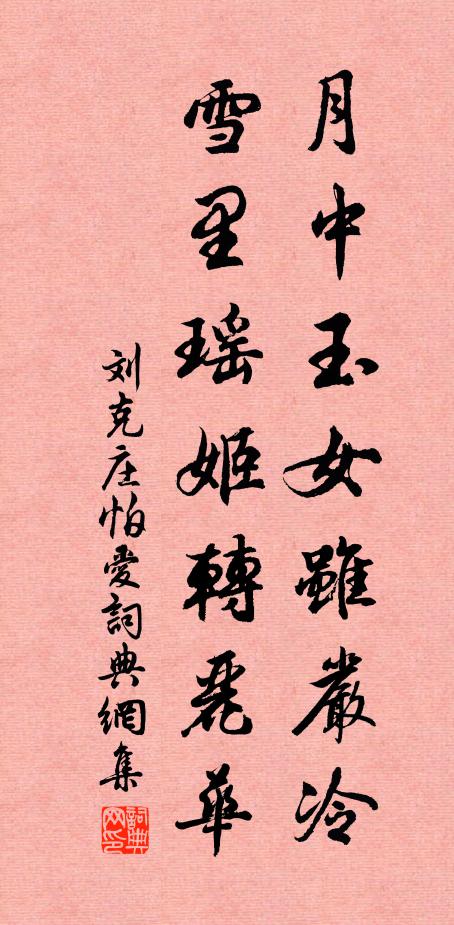 月中玉女雖嚴冷
雪里瑶姬轉麗華
刘克庄怕愛詞典網集
詞典
网印